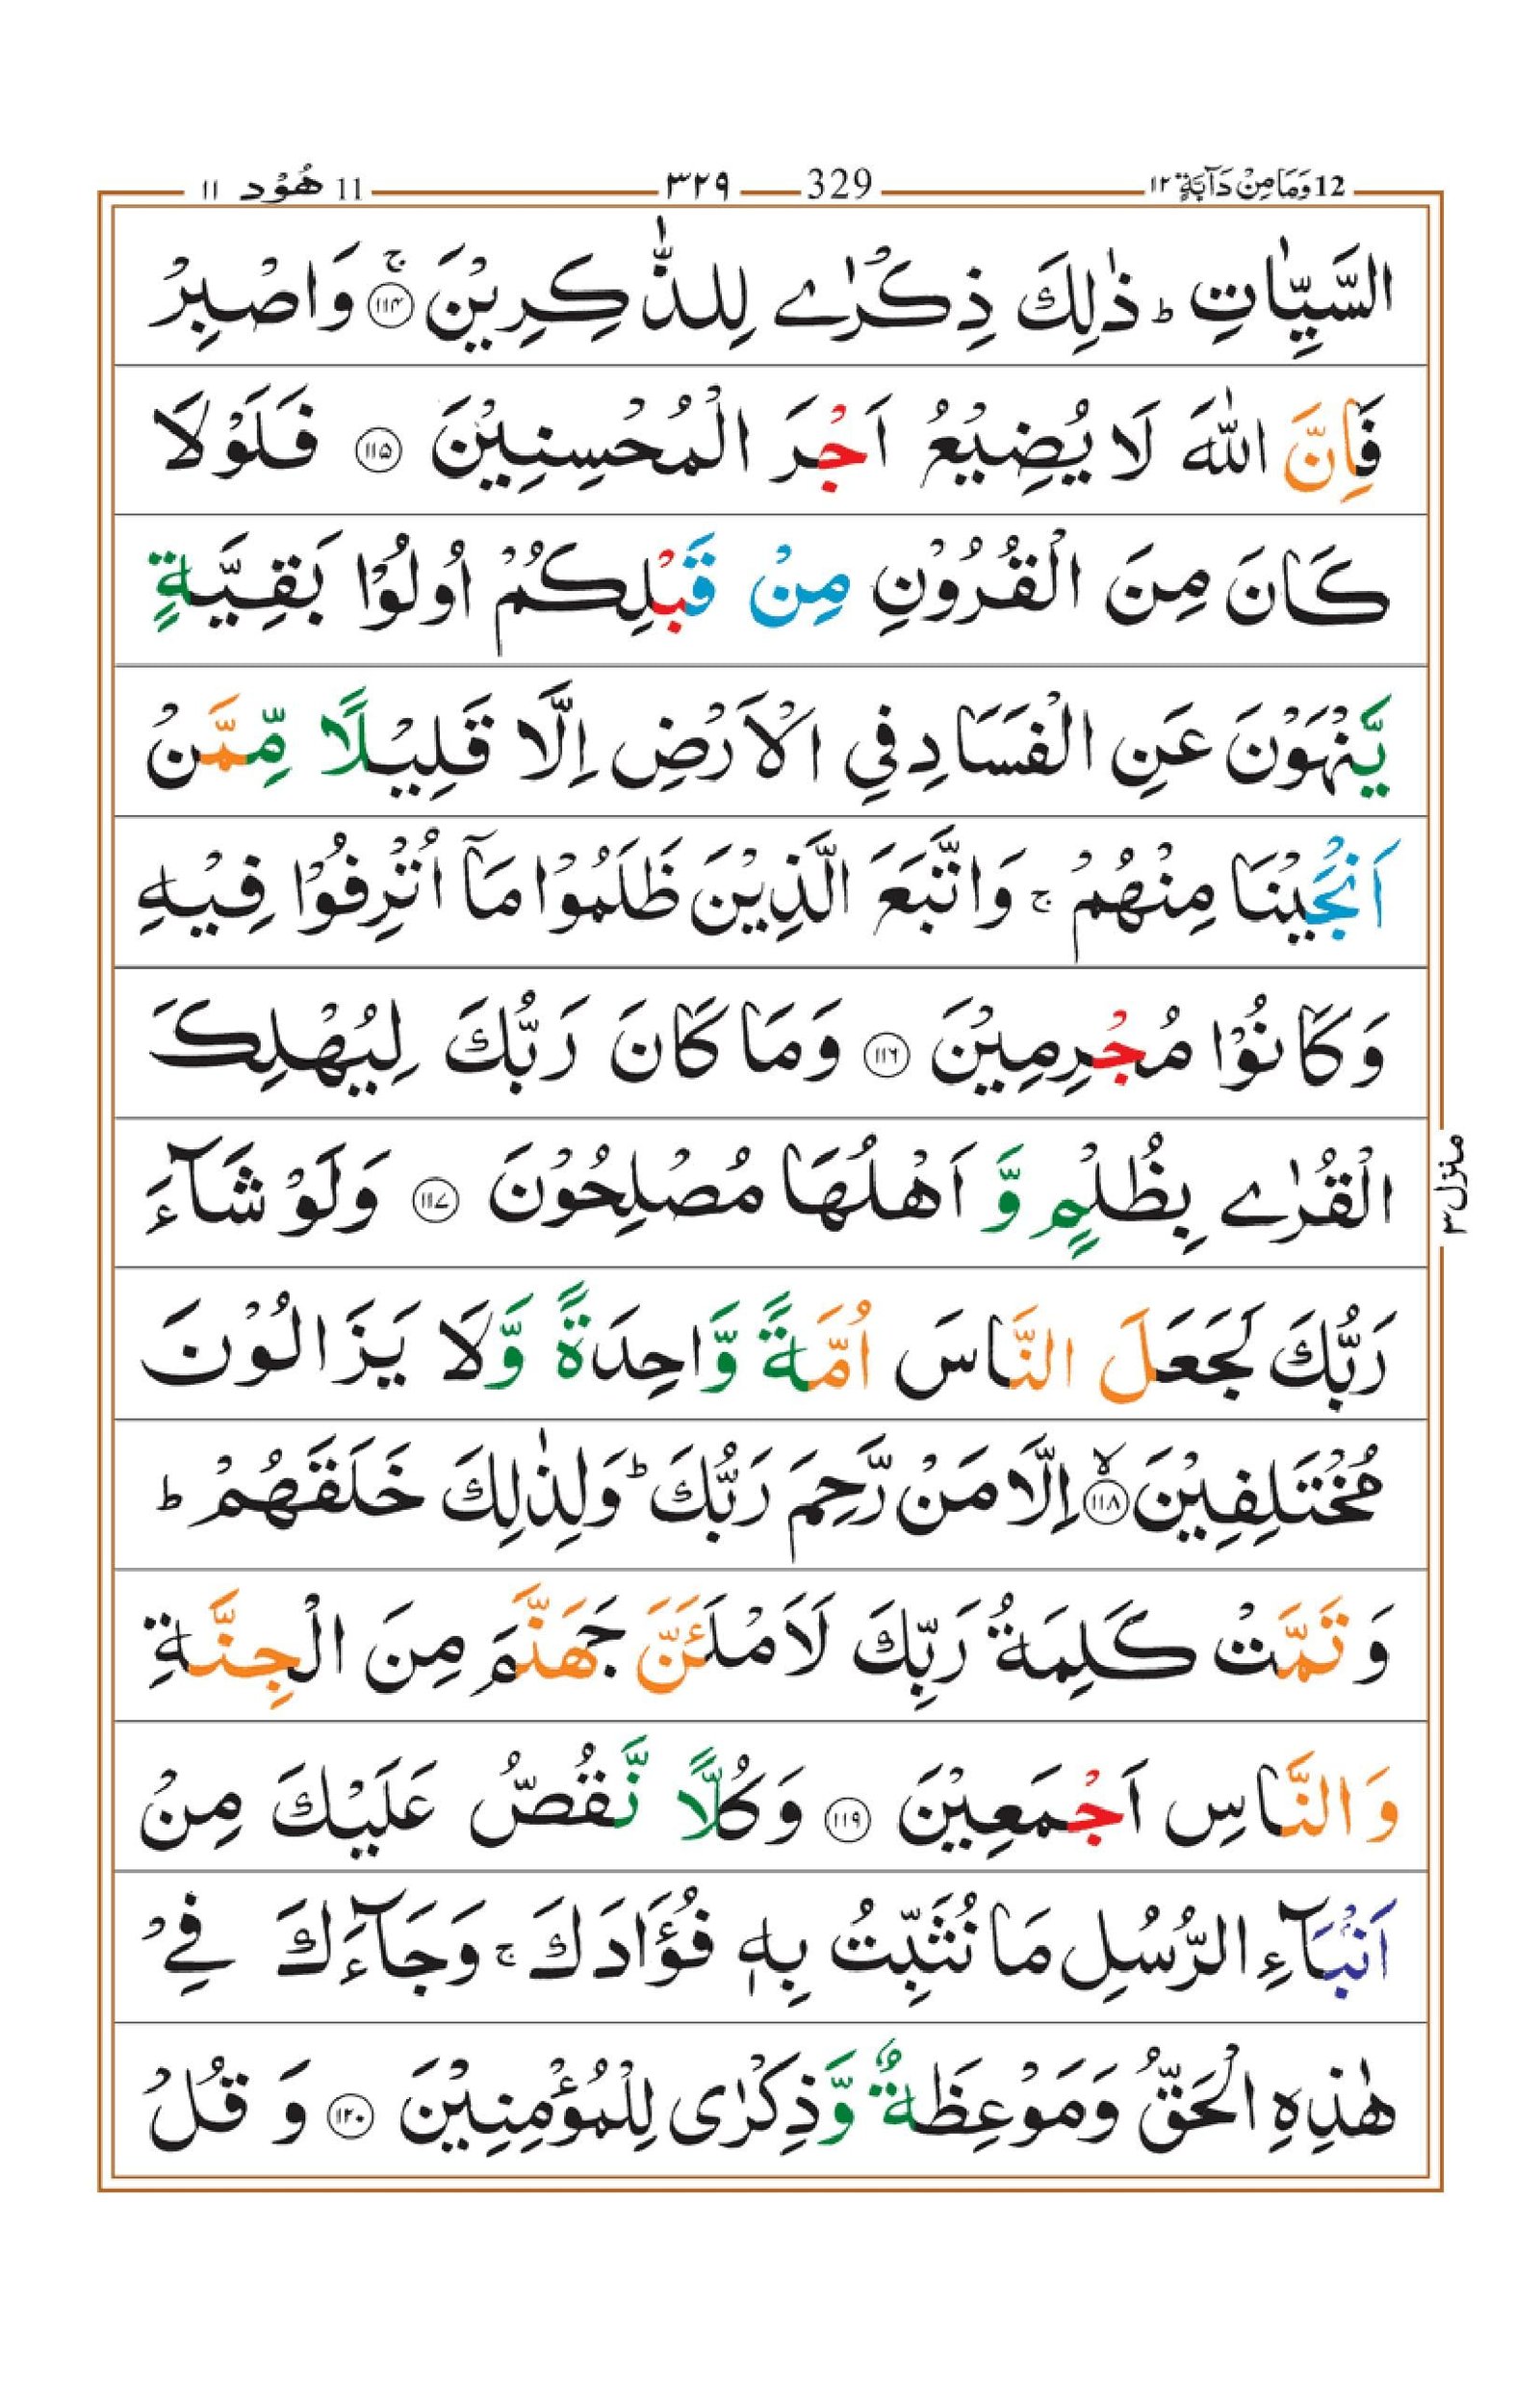 12 وَمَا مِنْ دَآبَّةٍ ١٢ 329 ٣٢٩ 11 هُوْد ١١
السَّيِّاٰتِ ؕ ذٰلِكَ ذِكْرٰے لِلذّٰكِرِيْنَ ۚ ﴿۱۱۴﴾ وَاصْبِرْ
فَاِنَّ اللّٰهَ لَا يُضِيْعُ اَجْرَ الْمُحْسِنِيْنَ ﴿۱۱۵﴾ فَلَوْلَا
كَانَ مِنَ الْقُرُوْنِ مِنْ قَبْلِكُمْ اُولُوْا بَقِيَّةٍ
يَّنْهَوْنَ عَنِ الْفَسَادِ فِي الْاَرْضِ اِلَّا قَلِيْلًا مِّمَّنْ
اَنْجَيْنَا مِنْهُمْ ۚ وَاتَّبَعَ الَّذِيْنَ ظَلَمُوْا مَاۤ اُتْرِفُوْا فِيْهِ
وَكَانُوْا مُجْرِمِيْنَ ﴿۱۱۶﴾ وَمَا كَانَ رَبُّكَ لِيُهْلِكَ
الْقُرٰے بِظُلْمٍ وَّ اَهْلُهَا مُصْلِحُوْنَ ﴿۱۱۷﴾ وَلَوْ شَآءَ
رَبُّكَ لَجَعَلَ النَّاسَ اُمَّةً وَّاحِدَةً وَّلَا يَزَالُوْنَ
مُخْتَلِفِيْنَ ۙ ﴿۱۱۸﴾ اِلَّا مَنْ رَّحِمَ رَبُّكَ ؕ وَلِذٰلِكَ خَلَقَهُمْ ؕ
وَتَمَّتْ كَلِمَةُ رَبِّكَ لَاَمْلَئَنَّ جَهَنَّمَ مِنَ الْجِنَّةِ
وَالنَّاسِ اَجْمَعِيْنَ ﴿۱۱۹﴾ وَكُلًّا نَّقُصُّ عَلَيْكَ مِنْ
اَنْۢبَآءِ الرُّسُلِ مَا نُثَبِّتُ بِهٖ فُؤَادَكَ ۚ وَجَآءَكَ فِيْ
هٰذِهِ الْحَقُّ وَمَوْعِظَةٌ وَّذِكْرٰى لِلْمُؤْمِنِيْنَ ﴿۱۲۰﴾ وَ قُلْ
منزل ۳